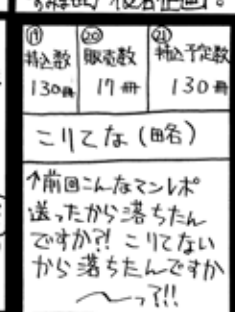 ⑲ ⑳ ㉑
持込数 販売数 持込予定数
130冊 17冊 130冊
こりてな(略)
↑前回こんなマンレポ
送ったから落ちたん
ですか?! こりてない
から落ちたんですか
〜っ?!!